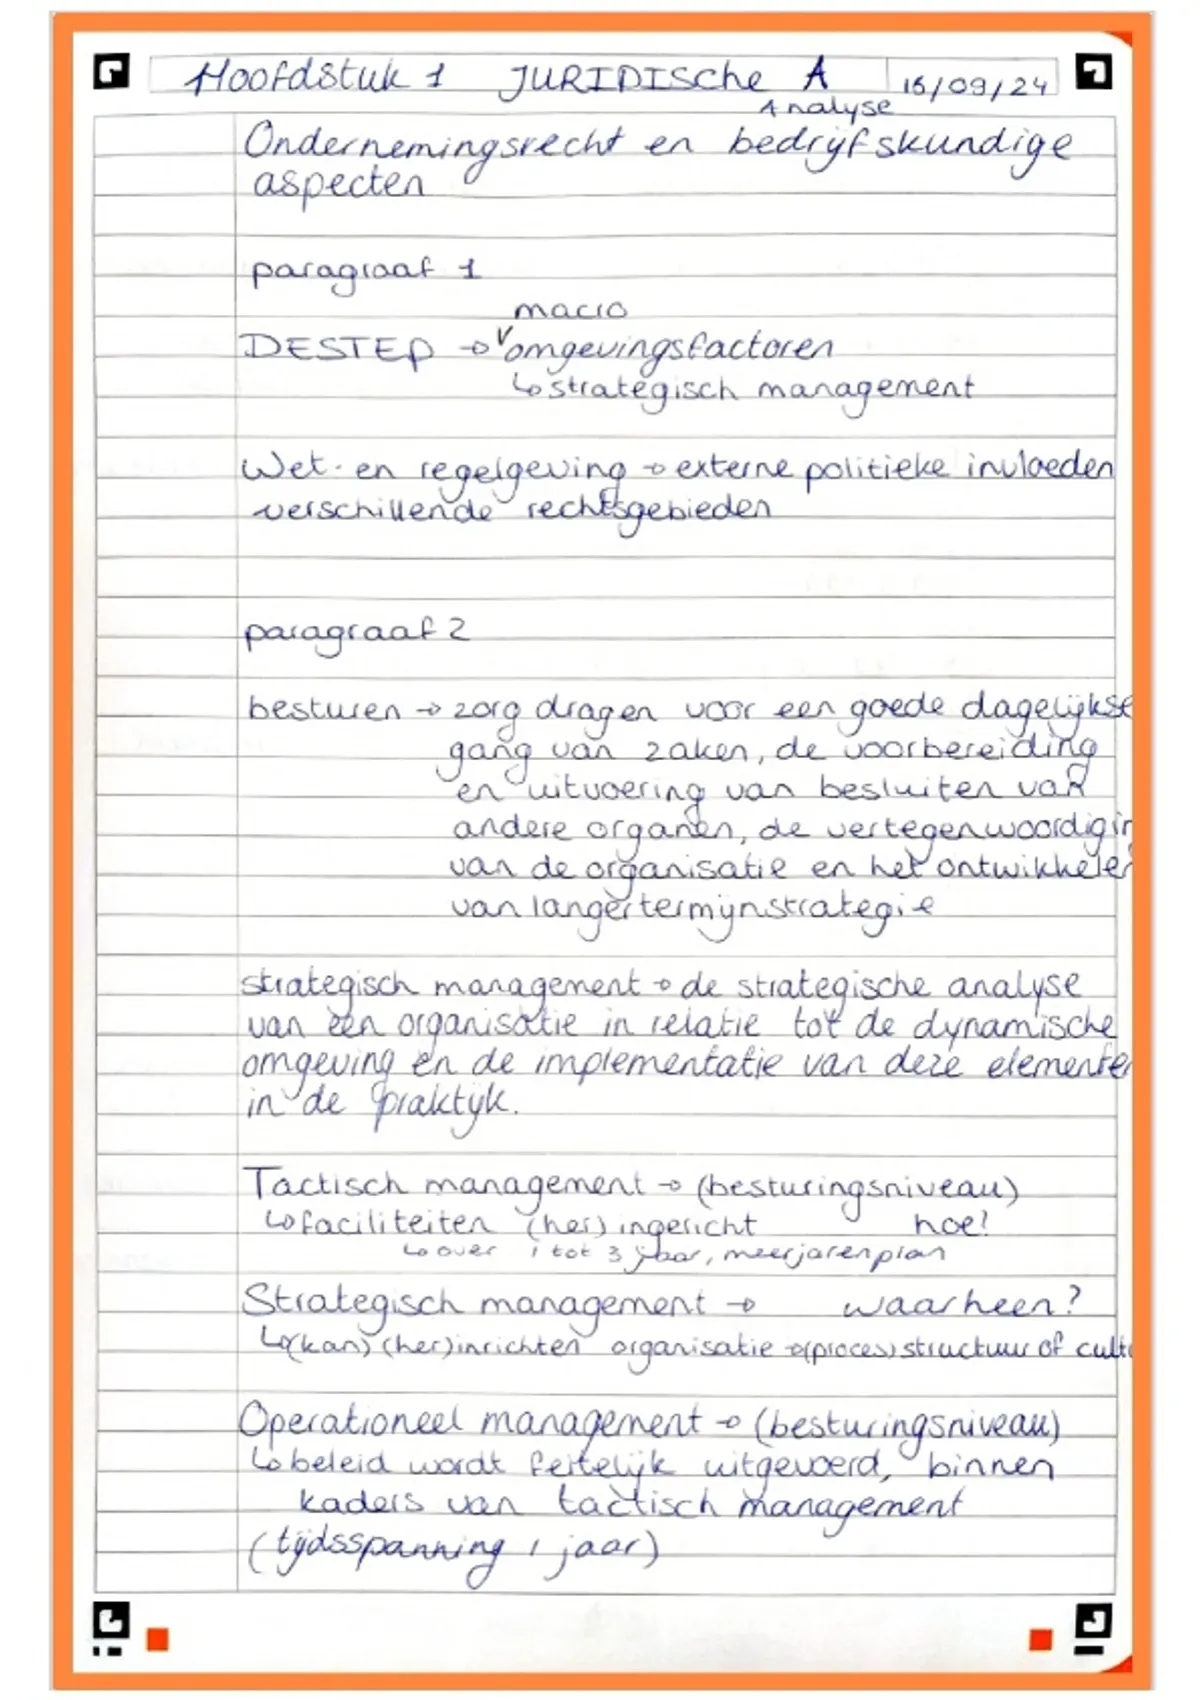 Hoofdstuk 1 JURIDISche A 16/09/24
Analyse
Ondernemingsrecht en bedrijfskundige
aspecten
paragraaf 1
macro
DESTEP → omgevingsfactoren
↳ strategisch management
Wet- en regelgeving → externe politieke invloeden
verschillende rechtsgebieden
paragraaf 2
besturen → zorg dragen voor een goede dagelijkse
gang van zaken, de voorbereiding
en uitvoering van besluiten van
andere organen, de vertegenwoordigin
van de organisatie en het ontwikkelen
van langertermijnstrategie
strategisch management → de strategische analyse
van een organisatie in relatie tot de dynamische
omgeving en de implementatie van deze elementen
in de praktijk.
Tactisch management → (besturingsniveau)
↳ faciliteiten (her) ingericht hoe?
↳ over 1 tot 3 jaar, meerjarenplan
Strategisch management → waarheen?
↳ (kan) (her)inrichten organisatie →(proces) structuur of cultu
Operationeel management → (besturingsniveau)
↳ beleid wordt feitelijk uitgevoerd, binnen
kaders van tactisch management
(tijdsspanning 1 jaar)